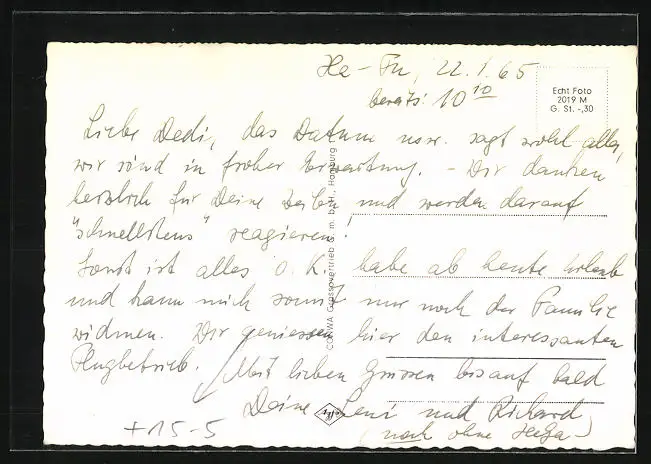 Ha-Fu, 22.1.65
bereits: 10 10
Echt Foto
2019 M
G. St. -,30
Liebe Dedi, das Datum usw. sagt wohl alles,
wir sind in froher Erwartung. - Wir danken
herzlich für Deine Zeilen und werden darauf
"schnellstens" reagieren!
Sonst ist alles O.K. habe ab heute Urlaub
und kann mich somit nur noch der Familie
widmen. Wir geniessen hier den interessanten
Flugbetrieb. Mit lieben Grüssen bis auf bald
Deine Leni und Richard
(noch ohne HeGa-)
+15-5
Grossovertrieb G. m. b. H., Hamburg 1
Agfa